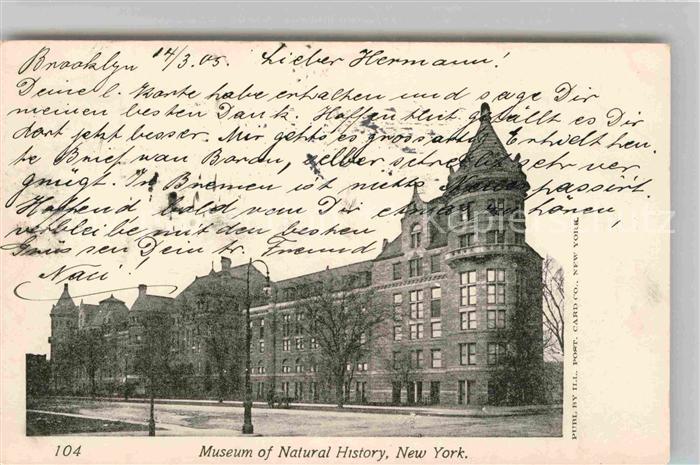 Brooklyn 14/3.05. Lieber Hermann!
Deine l. Karte habe erhalten und sage Dir
meinen besten Dank. Hoffentlich gefällt es Dir
dort jetzt besser. Mir gehts es grossartig. Erhielt heu-
te Brief von Baron, selber schreibt sehr ver-
gnügt. In Bremen ist nichts Neues passirt.
Hoffend bald von Dir etwas zu hören,
verbleibe mit den besten
Grüssen Dein tr. Freund
104 Museum of Natural History, New York.
PUBL. BY ILL. POST. CARD CO., NEW YORK.